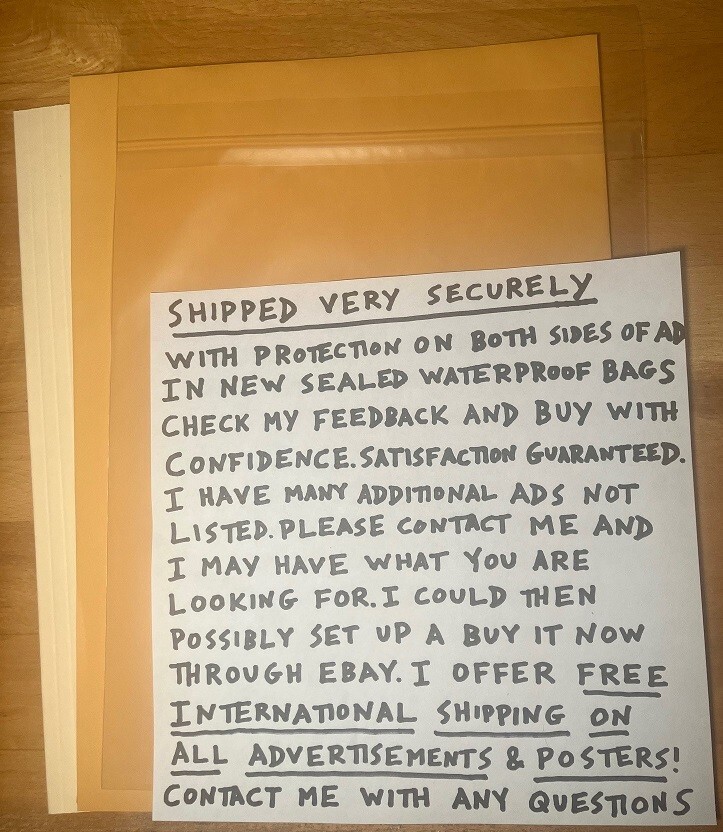 SHIPPED VERY SECURELY
WITH PROTECTION ON BOTH SIDES OF AD
IN NEW SEALED WATERPROOF BAGS
CHECK MY FEEDBACK AND BUY WITH
CONFIDENCE. SATISFACTION GUARANTEED.
I HAVE MANY ADDITIONAL ADS NOT
LISTED. PLEASE CONTACT ME AND
I MAY HAVE WHAT YOU ARE
LOOKING FOR. I COULD THEN
POSSIBLY SET UP A BUY IT NOW
THROUGH EBAY. I OFFER FREE
INTERNATIONAL SHIPPING ON
ALL ADVERTISEMENTS & POSTERS!
CONTACT ME WITH ANY QUESTIONS